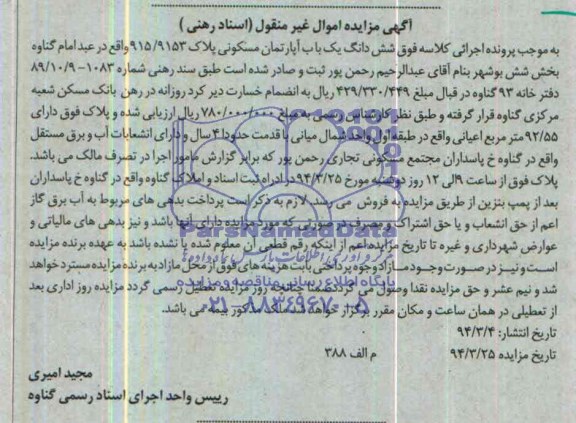 آگهی مزایده اموال غیر منقول (اسناد رهنی)
به موجب پرونده اجرائی کلاسه فوق شش دانگ یک باب آپارتمان مسکونی پلاک ۹۱۵/۹۱۵۳ واقع در عبد امام گناوه
بخش شش بوشهر بنام آقای عبدالرحیم رحمن پور ثبت و صادر شده است طبق سند رهنی شماره ۱۰۸۳- ۸۹/۱۰/۹
دفتر خانه ۹۳ گناوه در قبال مبلغ ۴۲۹/۳۳۰/۴۴۹ ریال به انضمام خسارت دیر کرد روزانه در رهن بانک مسکن شعبه
مرکزی گناوه قرار گرفته و طبق نظر کارشناس رسمی به مبلغ ۷۸۰/۰۰۰/۰۰۰ ریال ارزیابی شده و پلاک فوق دارای
۹۲/۵۵ متر مربع اعیانی واقع در طبقه اول واحد شمال میانی با قدمت حدودا ۴ سال و دارای انشعابات آب و برق مستقل
واقع در گناوه خ پاسداران مجتمع مسکونی تجاری رحمن پور که برابر گزارش مامور اجرا در تصرف مالک می باشد.
پلاک فوق از ساعت ۹ الی ۱۲ روز دوشنبه مورخ ۹۴/۳/۲۵ در اداره ثبت اسناد و املاک گناوه واقع در گناوه خ پاسداران
بعد از پمپ بنزین از طریق مزایده به فروش می رسد. لازم به ذکر است پرداخت بدهی های مربوط به آب برق گاز
اعم از حق انشعاب و یا حق اشتراک و مصرف در صورتی که مورد مزایده دارای آنها باشد و نیز بدهی های مالیاتی و
عوارض شهرداری و غیره تا تاریخ مزایده اعم از اینکه رقم قطعی آن معلوم شده یا نشده باشد به عهده برنده مزایده
است و نیز در صورت وجود مازاد وجوه پرداختی بابت هزینه های فوق از محل مازاد به برنده مزایده مسترد خواهد
شد و نیم عشر و حق مزایده نقدا وصول می گردد ضمنا چنانچه روز مزایده تعطیل رسمی گردد مزایده روز اداری بعد
از تعطیلی در همان ساعت و مکان مقرر برگزار خواهد شد. ملک مذکور بیمه می باشد.
تاریخ انتشار: ۹۴/۳/۴
تاریخ مزایده ۹۴/۳/۲۵
م الف ۳۸۸
مجید امیری
رییس واحد اجرای اسناد رسمی گناوه
ParsNamadData
پایگاه اطلاع رسانی مناقصه و مزایده
۰۲۱-۸۸۳۴۹۶۷۰-۵